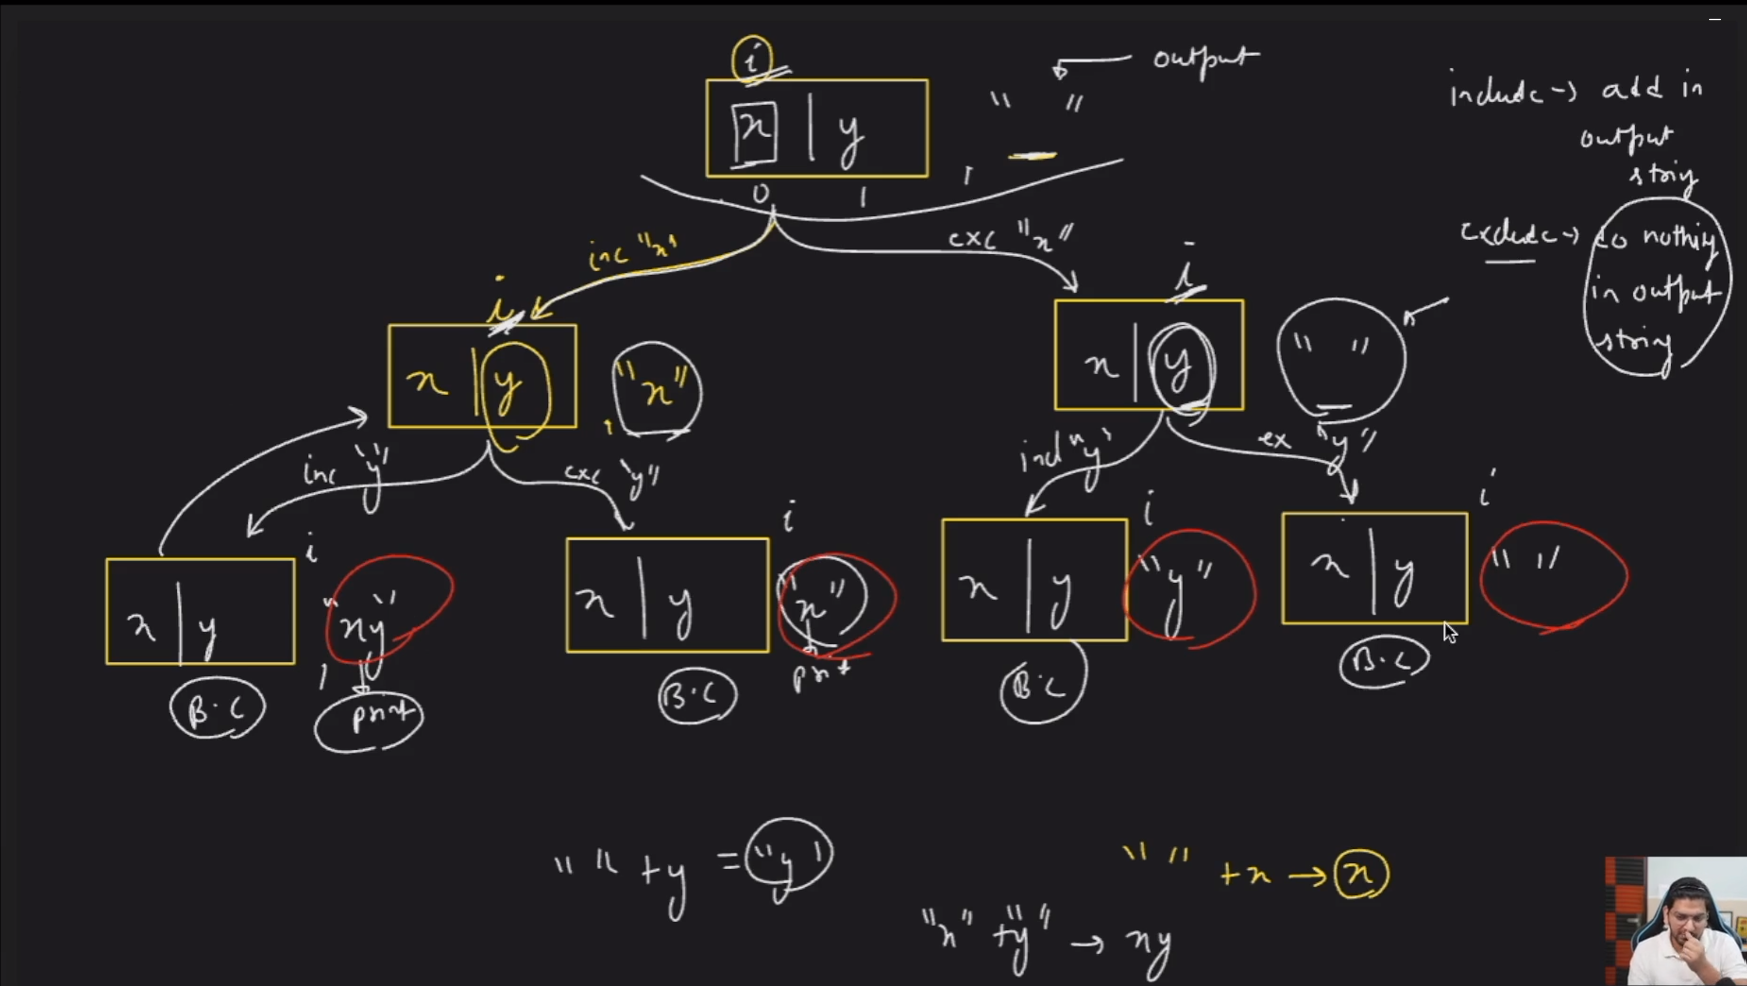 i
" " output
x | y
0 1
,
include → add in
output
string
exclude → do nothing
in output
string
inc "x"
exc "x"
i
x | y , "x"
i
x | y " "
inc "y"
exc "y"
incl "y"
ex "y"
i
x | y , "xy"
B.C
print
i
x | y "x"
B.C
print
i
x | y "y"
B.C
i
x | y " "
B.C
" " + y = "y"
" " + x → x
"x" + "y" → xy